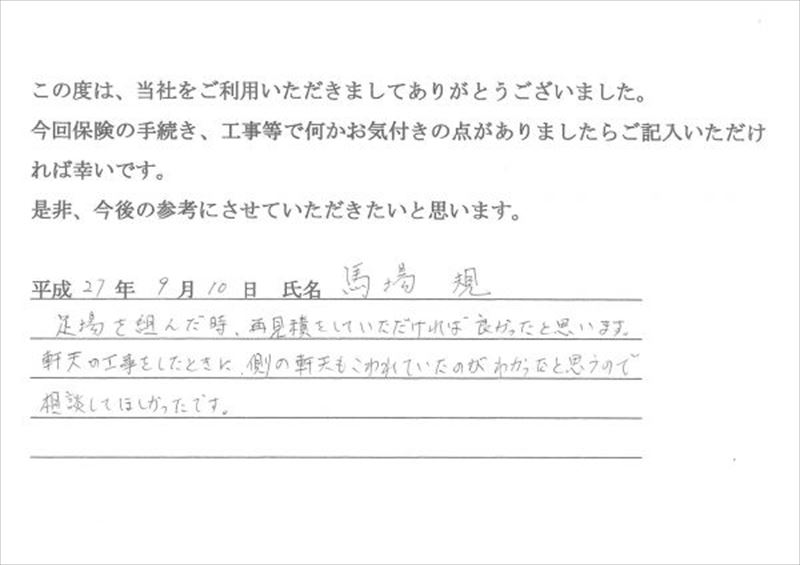 この度は、当社をご利用いただきましてありがとうございました。
今回保険の手続き、工事等で何かお気付きの点がありましたらご記入いただけ
れば幸いです。
是非、今後の参考にさせていただきたいと思います。
平成 27 年 9 月 10 日 氏名 馬場 規
足場を組んだ時、再見積をしていただければ良かったと思います。
軒天の工事をしたときに、側の軒天もこわれていたのがわかったと思うので
相談してほしかったです。